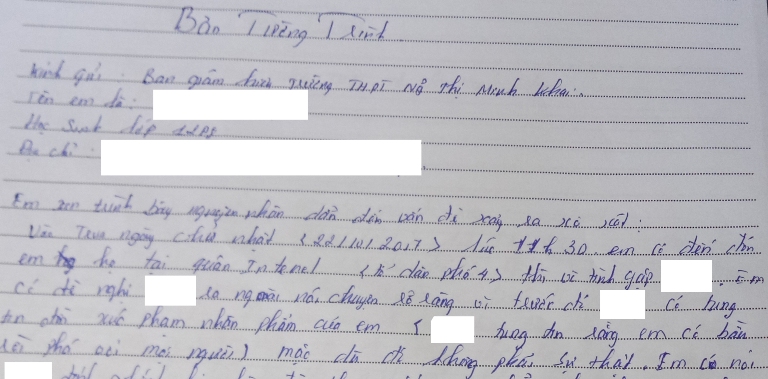 Bản Tường Trình
Kính gửi : Ban giám hiệu trường THPT Nguyễn Thị Minh Khai.
Tên em là :
Học sinh lớp
Địa chỉ :
Em xin trình bày nguyên nhân dẫn đến vấn đề xảy ra xô xát :
Vào Trưa ngày chủ nhật < 22/10/2017 > lúc 11h30 em có đến đón
em họ tại quán Internet < tổ dân phố 4 > thì vô tình gặp . Em
có đề nghị ra ngoài nói chuyện rõ ràng vì trước đó có tung
tin đồn xúc phạm nhân phẩm của em ( tung tin rằng em có bầu
rồi phá với mọi người ) mặc dù đó không phải sự thật . Em có nói